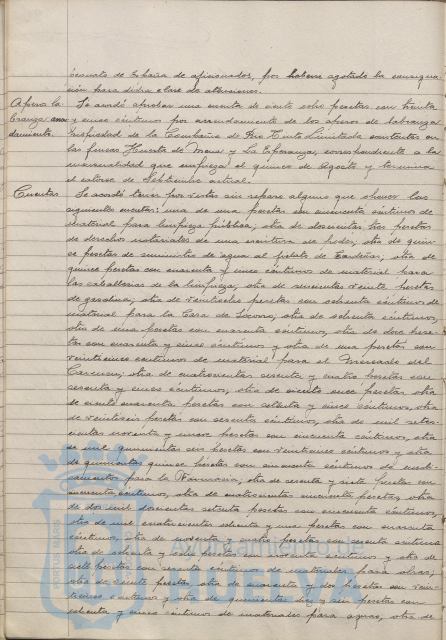 ésimato de España de aficionados, por haberse agotado la consigna-
ción para dicha clase de atenciones.
Apero la- Se acordó aprobar una cuenta de ciento ocho pesetas con treinta
branza arren- y cinco céntimos por arrendamiento de los aperos de labranza
damiento. propiedad de la Compañía de Rio Tinto Limitada existentes en
las fincas Huerta de Mena y La Esperanza, correspondiente a la
mensualidad que empieza el quince de Agosto y termina
el catorce de Septiembre actual.
Cuentas. Se acordó tener por vistas sin reparo alguno que oponer las
siguientes cuentas: una de una peseta con cincuenta céntimos de
material para limpieza pública; otra de doscientas tres pesetas
de derechos notariales de una escritura de poder; otra de quin-
ce pesetas de suministro de agua al de; otra de
quince pesetas con cuarenta y cinco céntimos de material para
las caballerías de la limpieza; otra de seiscientas veinte pesetas
de gasolina; otra de veintiocho pesetas con ochenta céntimos de
material para la Casa de Socorro; otra de ochenta céntimos,
otra de una peseta con cuarenta céntimos, otra de doce pese-
tas con cuarenta y cinco céntimos y otra de una peseta con
veinticinco céntimos de material para el Mercado del
Carmen; otra de cuatrocientas sesenta y cuatro pesetas con
sesenta y cinco céntimos, otra de ciento once pesetas, otra
de ciento cuarenta pesetas con setenta y cinco céntimos, otra
de veintiseis pesetas con sesenta céntimos, otra de mil sete-
cientas noventa y cinco pesetas con cincuenta céntimos, otra
de mil quinientas seis pesetas con veinticinco céntimos y otra
de quinientas quince pesetas con cincuenta céntimos de medi-
camentos para la Farmacia; otra de sesenta y siete pesetas con
cincuenta céntimos, otra de cuatrocientas cincuenta pesetas, otra
de dos mil doscientas setenta pesetas con cincuenta céntimos,
otra de mil cuatrocientas ochenta y una pesetas con cuarenta
céntimos, otra de noventa y cuatro pesetas con sesenta céntimos
otra de ochenta y pesetas con céntimos y otra de
mil pesetas con sesenta céntimos de materiales para obras;
otra de veinte pesetas, otra de cuarenta y dos pesetas con vein-
ticinco céntimos y otra de quinientas diez y seis pesetas con
ochenta y cinco céntimos de materiales para aguas, otra de
Ayuntamiento de